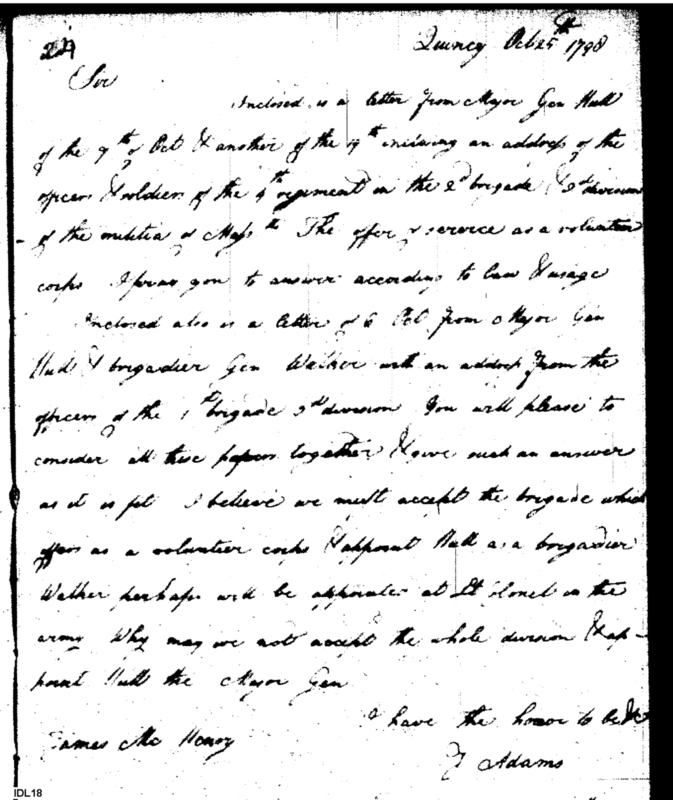 24
Quincy Oct 25th 1798
Sir
Inclosed is a letter from Major Gen Hull
of the 7th of Oct & another of the 19th inclosing an address of the
officers & soldiers of the 4th regiment in the 2d brigade & 3d division
of the militia of Massth The offer of service as a volunteer
corps I pray you to answer according to law & usage
Inclosed also is a letter of 6 Oct from Major Gen
Hull & brigadier Gen Walker with an address from the
officers of the 1st brigade 3d division You will please to
consider all these papers together & give such an answer
as it is fit I believe we must accept the brigade which
offers as a volunteer corps & appoint Hull as a brigadier
Walker perhaps will be appointed at Lt Colonel in the
army Why may we not accept the whole division & ap-
point Hull the Major Gen
I have the honor to be &c
James McHenry
J Adams
IDL18